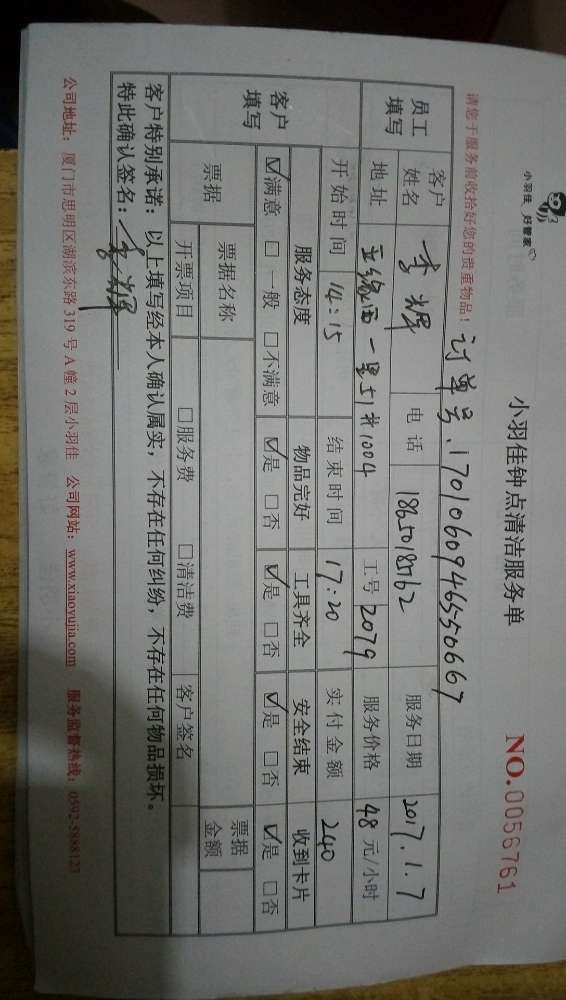 小羽佳 好管家
小羽佳钟点清洁服务单
NO.0056761
请您于服务前收拾好您的贵重物品！
订单号.17010609465506667
员工填写 客户姓名 李辉 电话 服务日期 2017.1.7
地址 51#1004 工号 2079 服务价格 48 元/小时
开始时间 14:15 结束时间 17:20 实付金额 240
客户填写 服务态度 物品完好 工具齐全 安全结束 收到卡片
☑满意 □一般 □不满意 ☑是 □否 ☑是 □否 ☑是 □否 ☑是 □否
票据 票据名称 票据金额
开票项目 □服务费 □清洁费 客户签名
客户特别承诺：以上填写经本人确认属实，不存在任何纠纷，不存在任何物品损坏。
特此确认签名：李辉
公司地址：厦门市思明区湖滨东路 319 号 A 幢 2 层小羽佳 公司网站：www.xiaoyujia.com 服务监督热线：0592-5888123